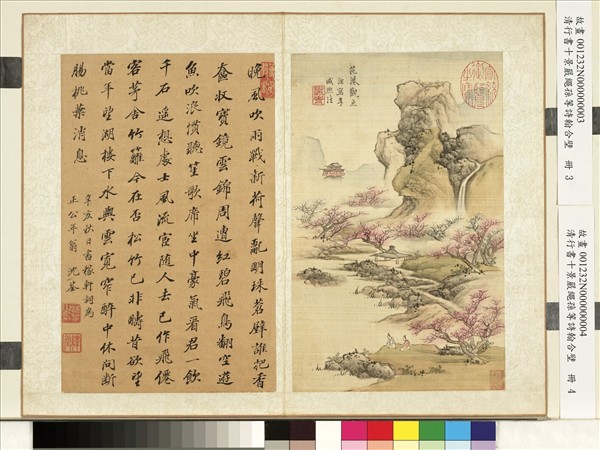 故畫 001232N000000003
清行書十景嚴繩孫等詩翰合璧 冊 3
故畫 001232N000000004
清行書十景嚴繩孫等詩翰合璧 冊 4
花港觀魚
晚風吹雨戰新荷聲亂明珠蒼璧誰把香
奩收寶鏡雲錦周遭紅碧飛鳥翻空遊
魚吹浪慣聽笙歌席坐中豪氣看君一飲
千石遙想處士風流隨人去已作飛僊
客茅舍竹籬今在否松竹已非疇昔欲
當年望湖樓下水與雲寬窄醉中休問斷
腸桃葉消息
辛亥秋日書稼軒詞為
正公年翁 沈荃